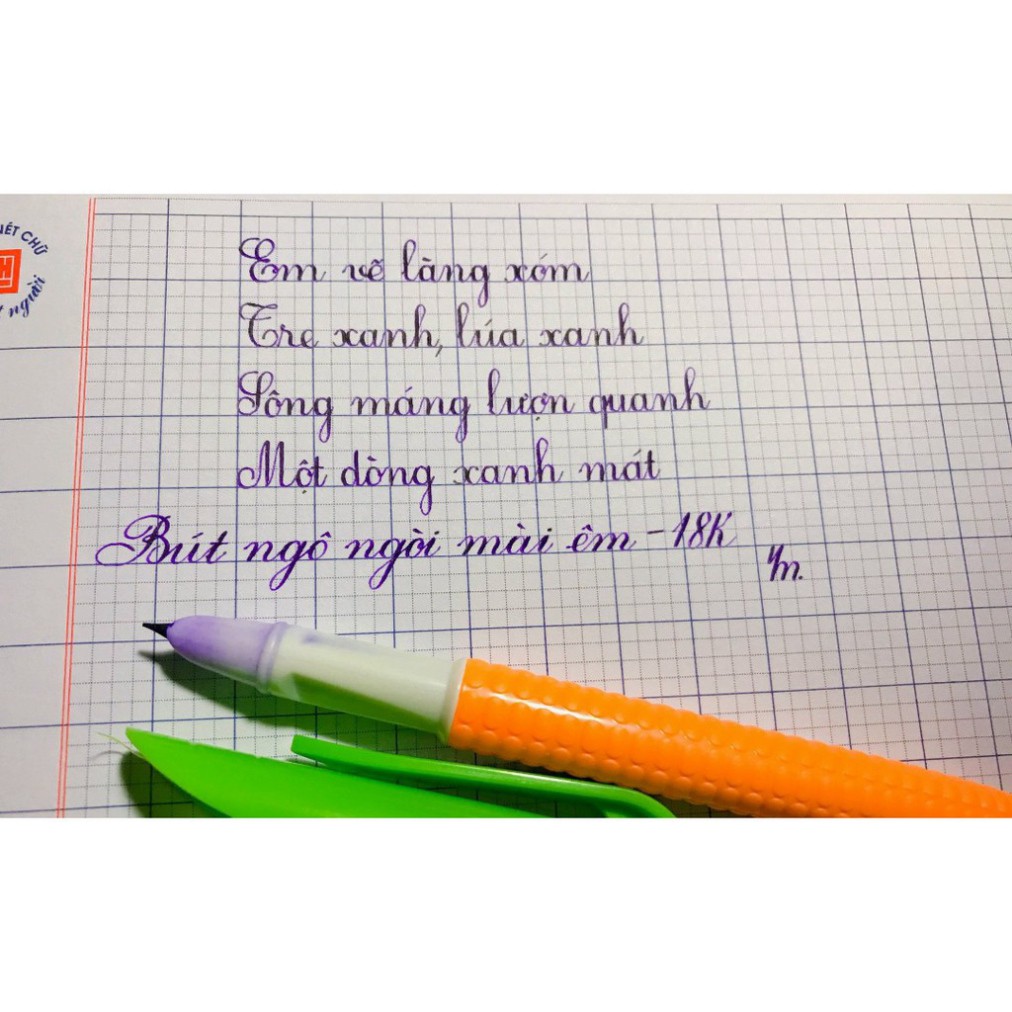 NÉT CHỮ
người
Em vẽ làng xóm
Tre xanh, lúa xanh
Sông máng lượn quanh
Một dòng xanh mát
Bút ngô ngòi mài êm - 18K